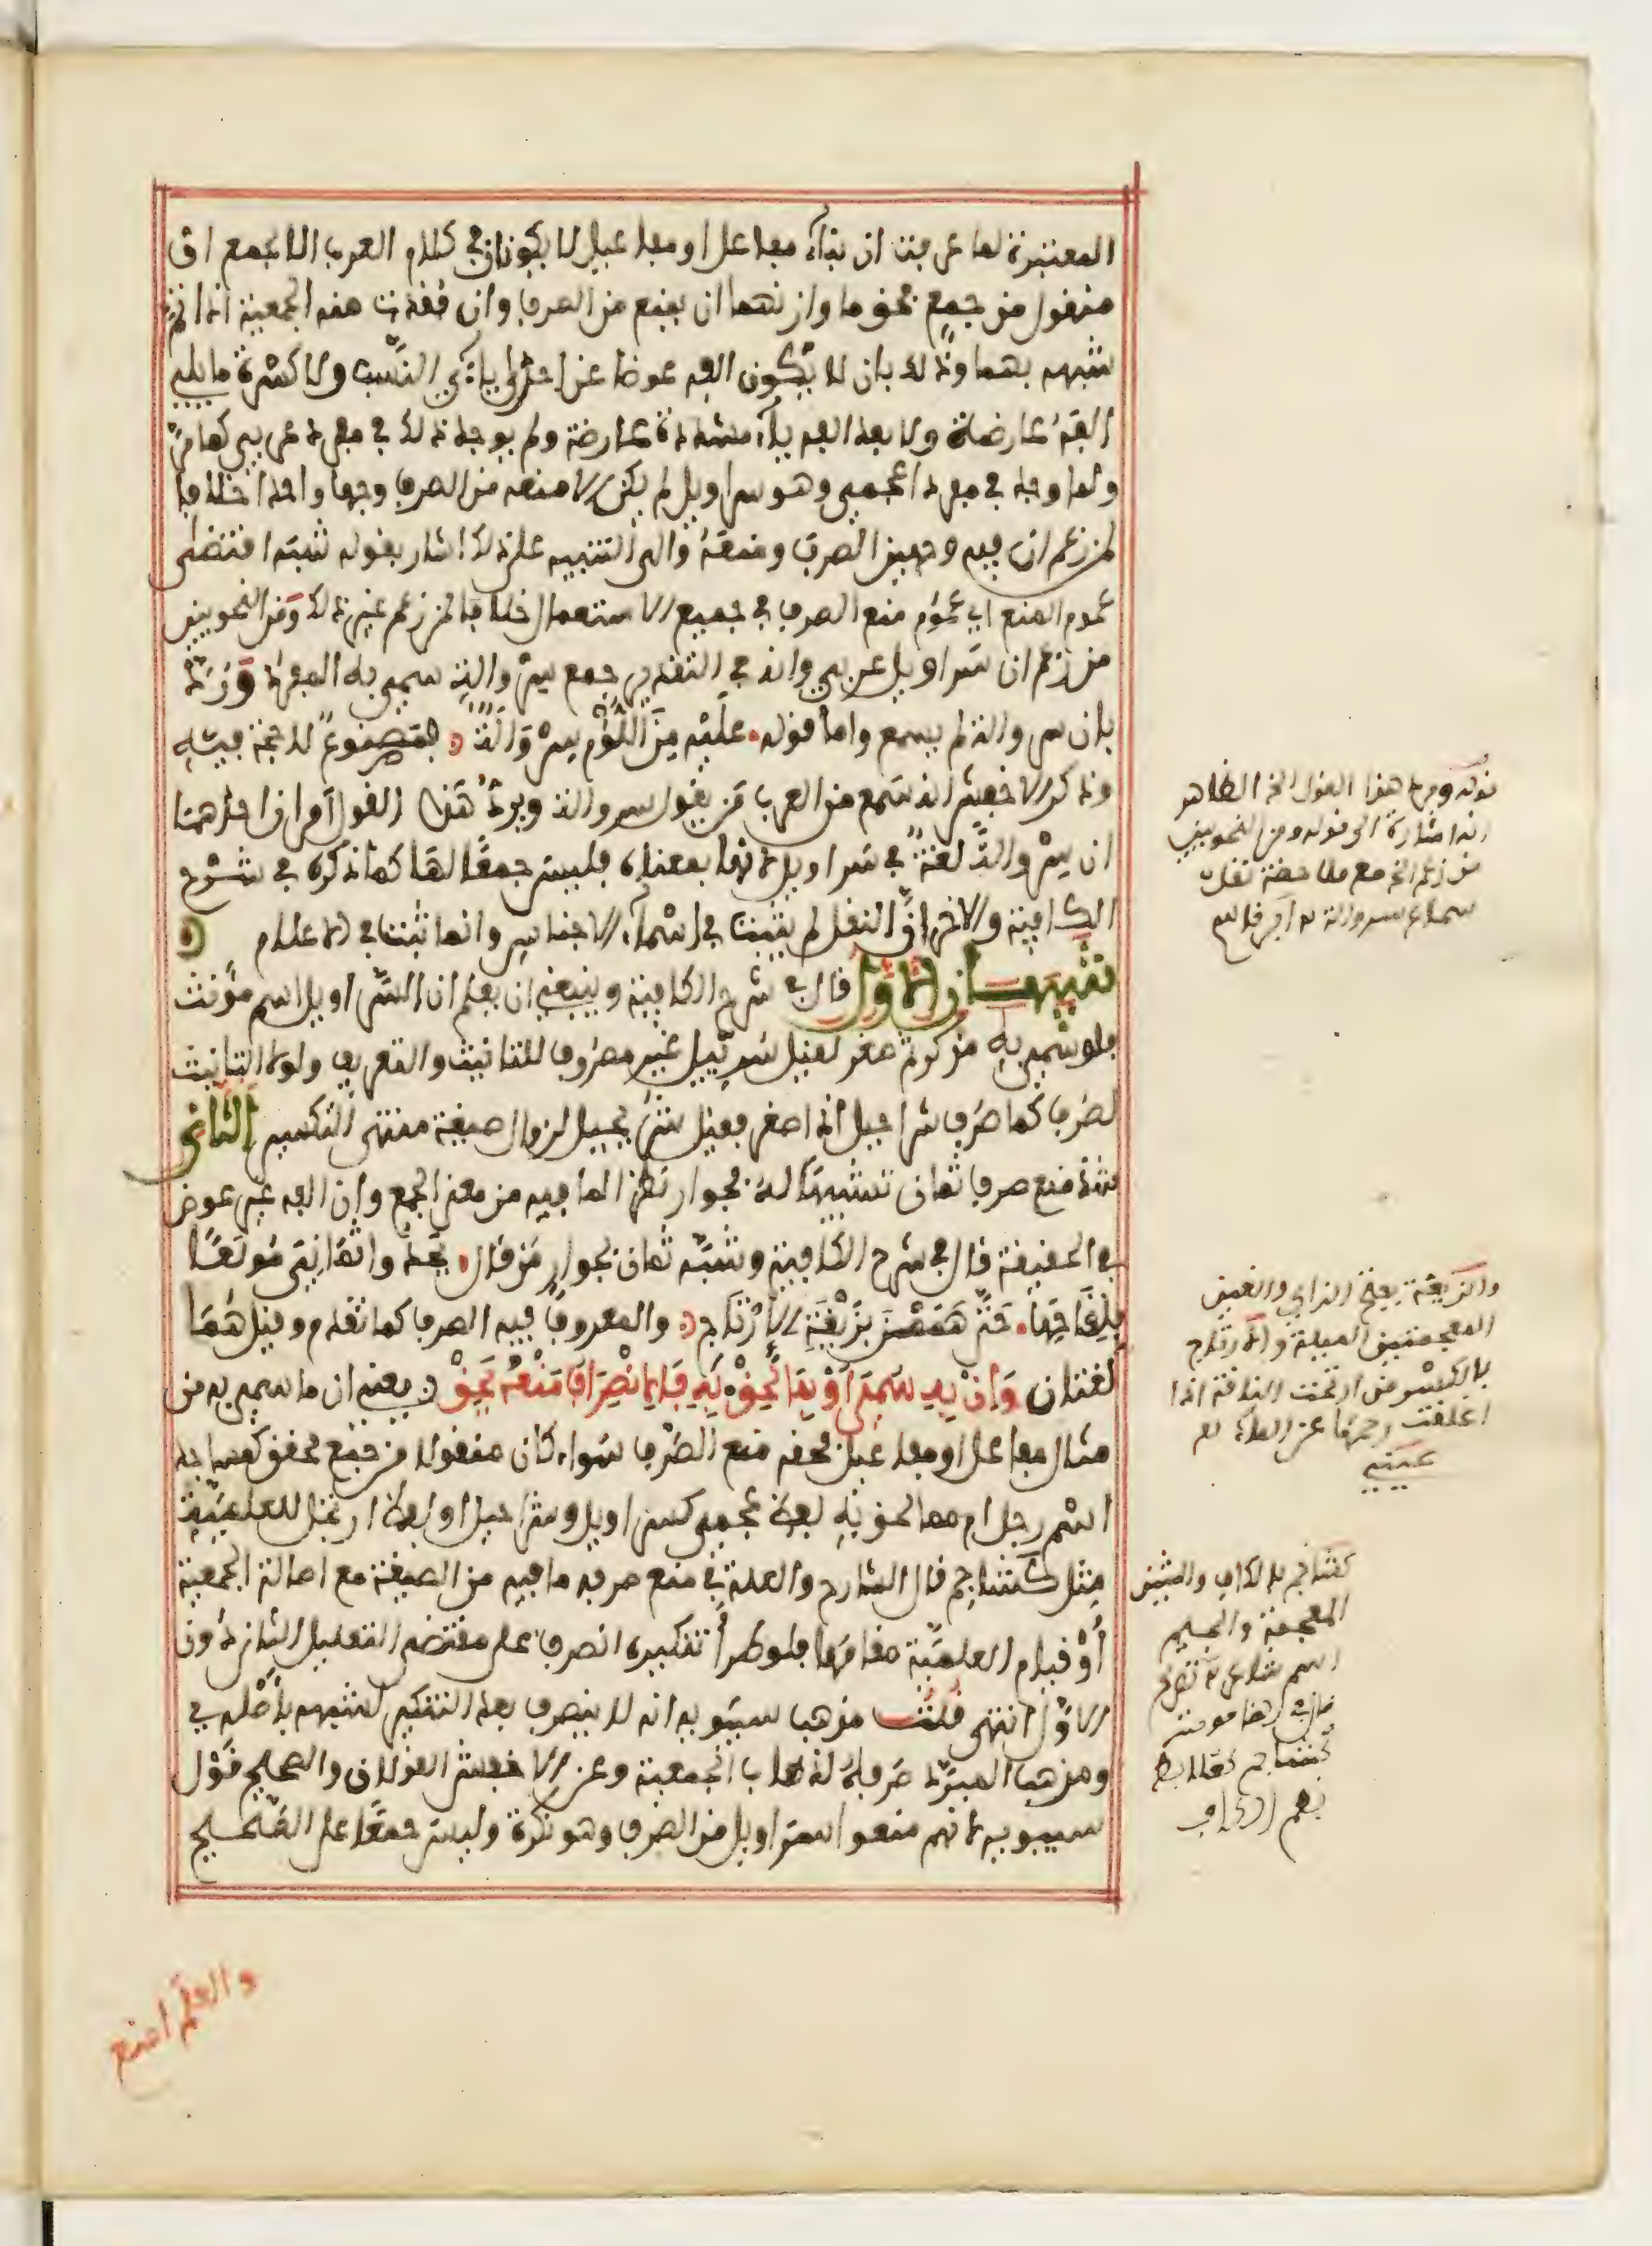 المعتبرة لما عرفت ان بناء مفاعل او مفاعيل لا يكونان في كلام العرب الا لجمع او
منقول من جمع فحق ما وازنهما ان يمنع من الصرف وان فقدت منه الجمعية اذا تم
شبهه بهما وذلك بان لا يكون الفه عوضا عن احدى ياءي النسب ولا كسرة ما يلي
الفه عارضة ولا بعد الفه ياء مشددة عارضة ولم يوجد ذلك في مفرد عربي كما مر
ولما وجد في مفرد اعجمي وهو سراويل لم يكن الا منعه من الصرف وجها واحدا خلافا
لمن زعم ان فيه وجهين الصرف ومنعه والى التنبيه على ذلك اشار بقوله شبه اقتضى
عموم المنع اي عموم منع الصرف في جميع الاستعمال خلافا لمن زعم غير ذلك ومن النحويين
من زعم ان سراويل عربي وانه في التقدير جمع سروالة سمي به المفرد ورد
بان سروالة لم يسمع واما قوله عليه من اللؤم سروالة فمصنوع لا حجة فيه
وذكر الاخفش انه سمع من العرب من يقول سروالة ويرد هذا القول امران احدهما
ان سروالة لغة في سراويل لانها بمعناه فليس جمعا لها كما ذكره في شرح
الكافية والاخر ان النقل لم يثبت في اسماء الاجناس وانما ثبت في الاعلام
تنبيهان الاول قال في شرح الكافية وينبغي ان يعلم ان السراويل اسم مؤنث
فلو سمي به مذكر ثم صغر لقيل سرييل غير مصروف للتانيث والتعريف ولولا التانيث
لصرف كما صرف شراحيل اذا صغر فقيل شريحيل لزوال صيغة منتهى التكسير الثاني
شذ منع صرف ثمان تشبيها له بجوار نظرا لما فيه من معنى الجمع وان الفه غير عوض
في الحقيقة قال في شرح الكافية وشبه ثمان بجوار من قال يحدو ثماني مولعا
بلقاحها حتى هممن بزيغة الارتاج والمعروف فيه الصرف كما تقدم وقيل هما
لغتان وان به سمي او بما لحق به فالانصراف منعه يحق يعني ان ما سمي به من
مثال مفاعل او مفاعيل فحقه منع الصرف سواء كان منقولا من جمع محقق كمساجد
اسم رجل ام مما لحق به لفظ عجمي كسراويل وشراحيل او لفظ ارتجل للعلمية
مثل كشاجم قال الشارح والعلة في منع صرفه ما فيه من الصيغة مع اصالة الجمعية
او قيام العلمية مقامها فلو طرا تنكيره انصرف على مقتضى التعليل الثاني دون
الاول انتهى قلت مذهب سيبويه انه لا ينصرف بعد التنكير لشبهه باصله
ومذهب المبرد صرفه لذهاب الجمعية وعن الاخفش القولان والصحيح قول
سيبويه لانهم منعوا سراويل من الصرف وهو نكرة وليس جمعا على الصحيح
قوله ويرد هذا القول الخ الظاهر
انه اشارة الى قوله ومن النحويين
من زعم الخ مع ملاحظة نقل
سماع سروالة
والزيغة بفتح الزاي والغين
المعجمتين الميلة والارتاج
بالكسر من ارتجت الناقة اذا
اغلقت رحمها عن الماء
عيني
كشاجم بالكاف والشين
المعجمة والجيم
اسم شاعر
كشاجم كعلابط
بضم الكاف
والعلم امنع